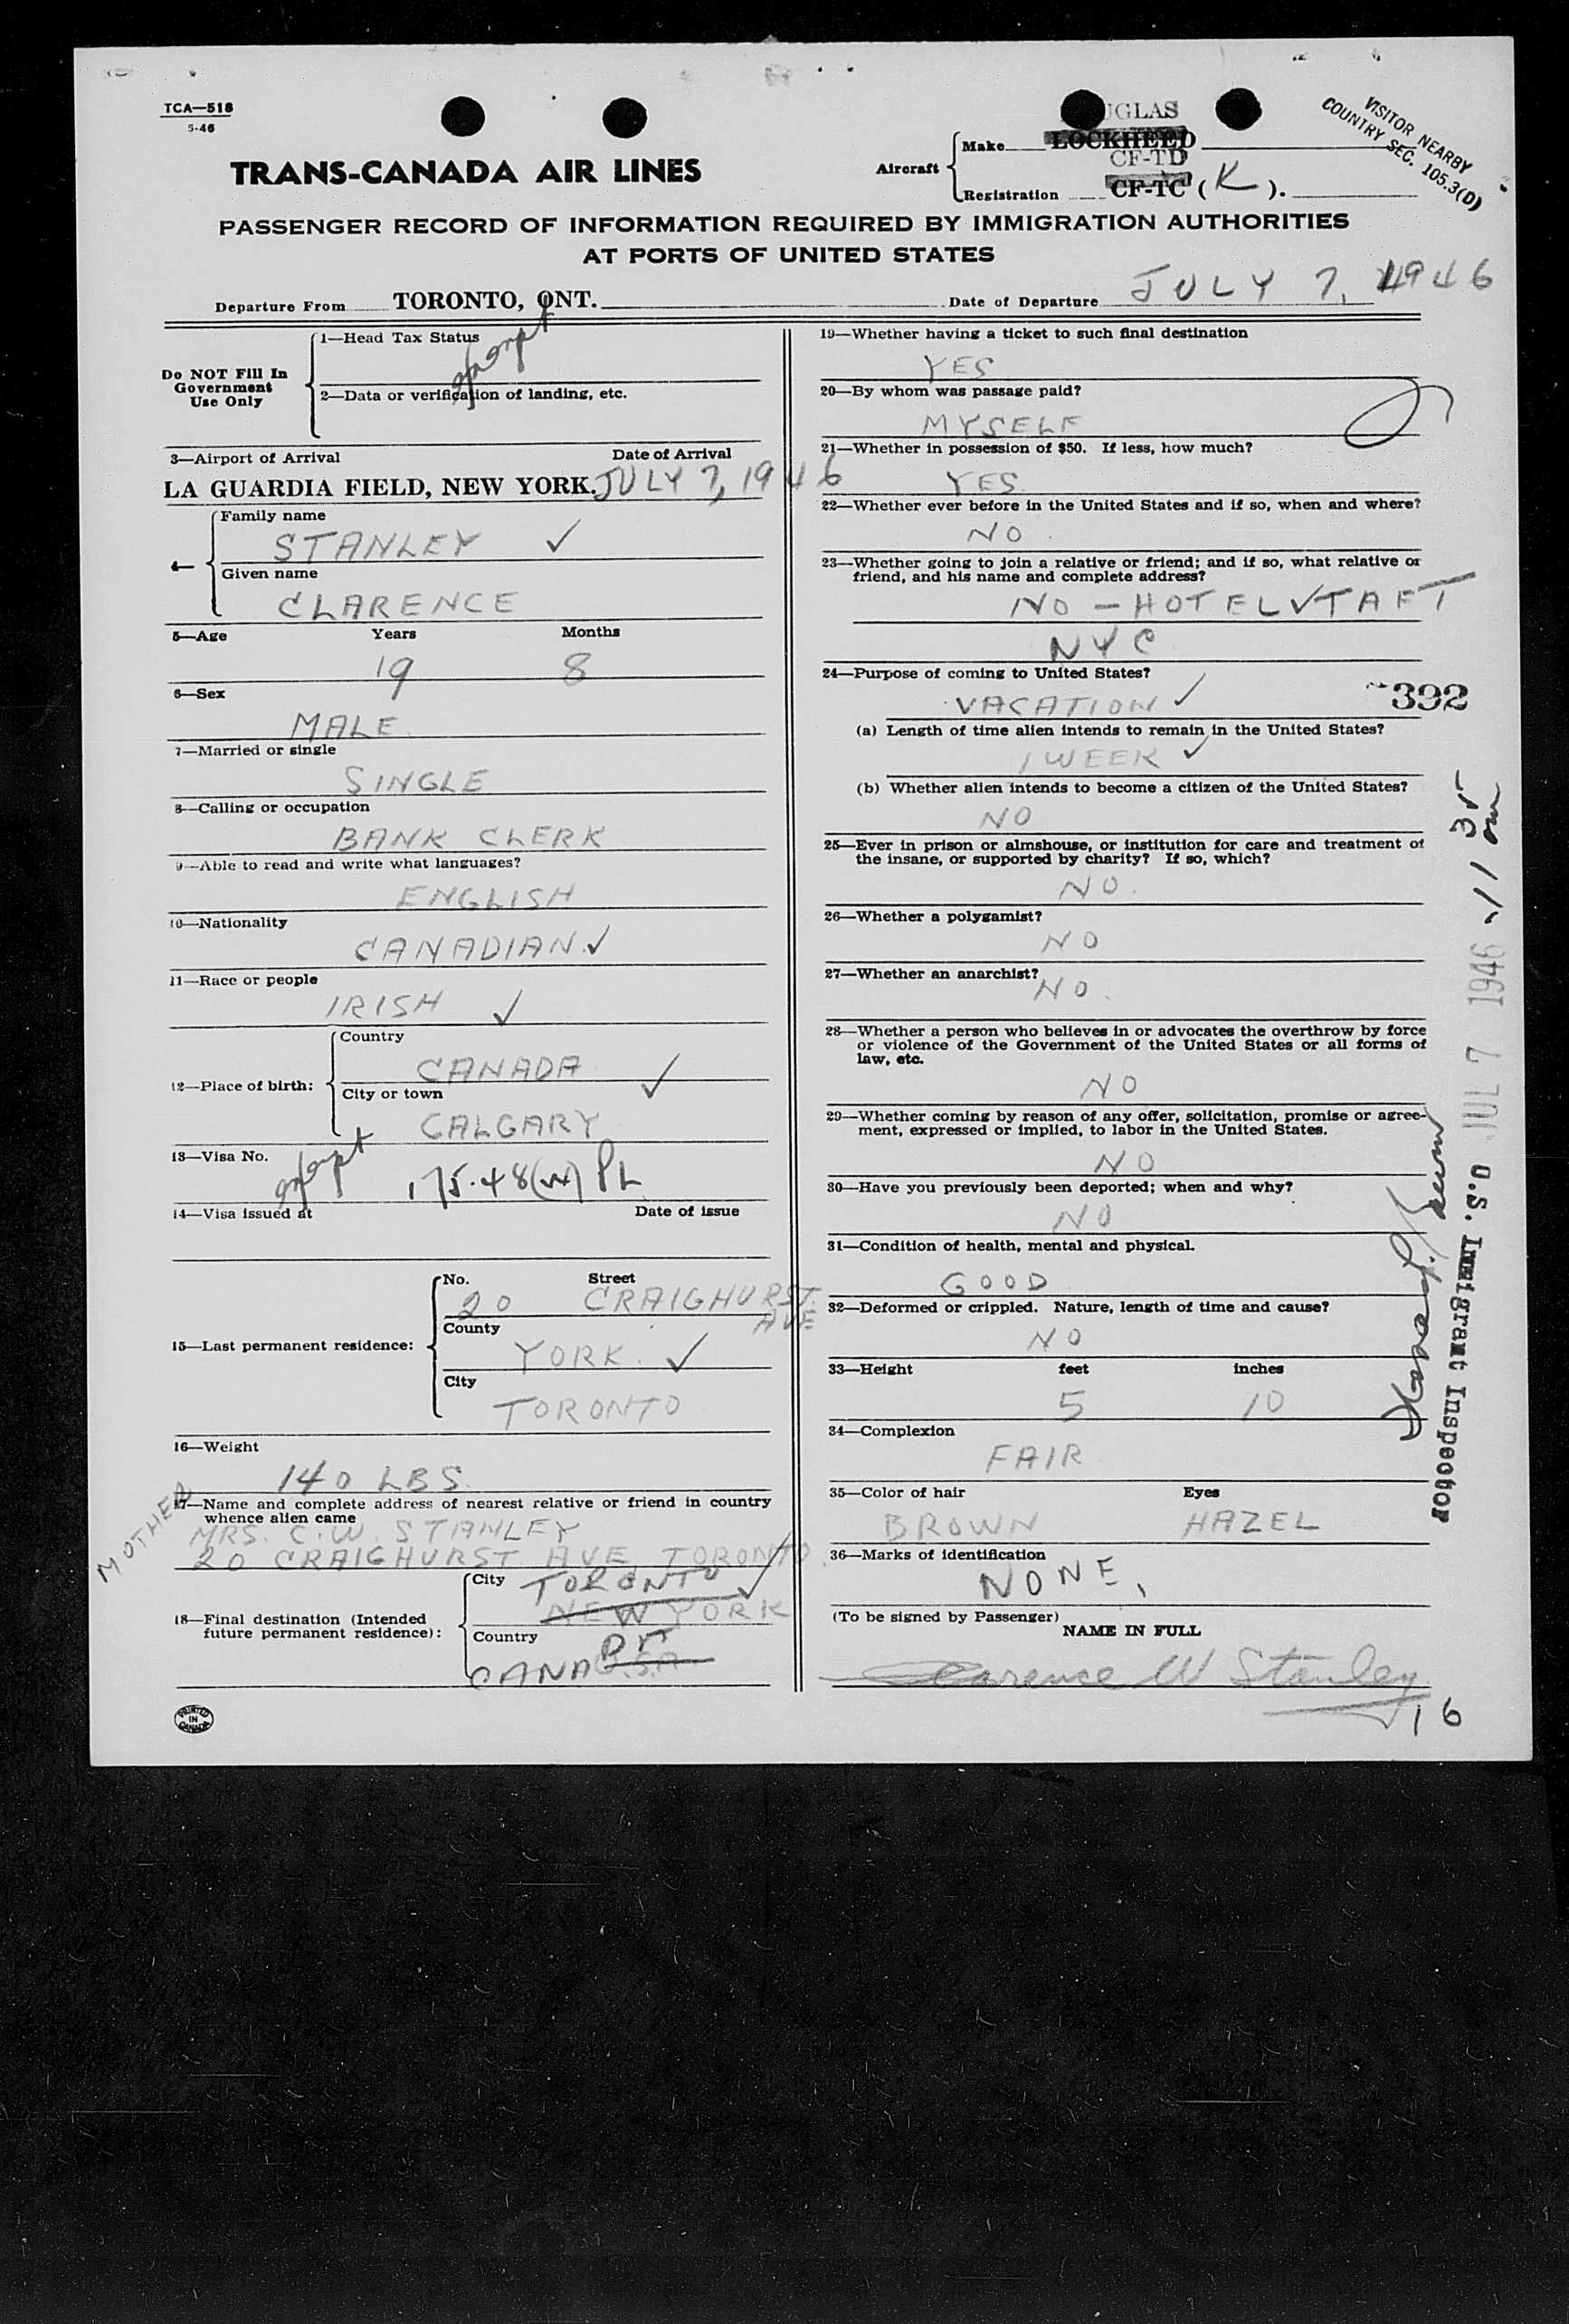 TCA—518
5-46
TRANS-CANADA AIR LINES
UGLAS
Aircraft
Make LOCKHEED
CF-TD
Registration CF-TC ( K ).
VISITOR NEARBY
COUNTRY SEC. 105.3(D)
PASSENGER RECORD OF INFORMATION REQUIRED BY IMMIGRATION AUTHORITIES
AT PORTS OF UNITED STATES
Departure From TORONTO, ONT. Date of Departure JULY 7, 1946
Do NOT Fill In
Government
Use Only
1—Head Tax Status
exempt
2—Data or verification of landing, etc.
3—Airport of Arrival Date of Arrival
LA GUARDIA FIELD, NEW YORK. JULY 7, 1946
4—
Family name
STANLEY ✓
Given name
CLARENCE
5—Age Years Months
19 8
6—Sex
MALE
7—Married or single
SINGLE
8—Calling or occupation
BANK CLERK
9—Able to read and write what languages?
ENGLISH
10—Nationality
CANADIAN ✓
11—Race or people
IRISH ✓
12—Place of birth:
Country
CANADA ✓
City or town
CALGARY
13—Visa No.
exempt 175.48(W) PL
14—Visa issued at Date of issue
15—Last permanent residence:
No. Street
20 CRAIGHURST
AVE
County
YORK. ✓
City
TORONTO
16—Weight
140 LBS.
17—Name and complete address of nearest relative or friend in country
whence alien came
MOTHER
MRS. C.W. STANLEY
20 CRAIGHURST AVE, TORONTO
18—Final destination (Intended
future permanent residence):
City TORONTO ✓
NEW YORK
Country
CANA U.S.A.
PRINTED
IN
CANADA
19—Whether having a ticket to such final destination
YES
20—By whom was passage paid?
MYSELF
21—Whether in possession of $50. If less, how much?
YES
22—Whether ever before in the United States and if so, when and where?
NO
23—Whether going to join a relative or friend; and if so, what relative or
friend, and his name and complete address?
NO — HOTEL ✓ TAFT
NYC
24—Purpose of coming to United States?
VACATION ✓
392
(a) Length of time alien intends to remain in the United States?
1 WEEK ✓
(b) Whether alien intends to become a citizen of the United States?
NO
25—Ever in prison or almshouse, or institution for care and treatment of
the insane, or supported by charity? If so, which?
NO.
26—Whether a polygamist?
NO
27—Whether an anarchist?
NO.
28—Whether a person who believes in or advocates the overthrow by force
or violence of the Government of the United States or all forms of
law, etc.
NO
29—Whether coming by reason of any offer, solicitation, promise or agree-
ment, expressed or implied, to labor in the United States.
NO
30—Have you previously been deported; when and why?
NO
31—Condition of health, mental and physical.
GOOD
32—Deformed or crippled. Nature, length of time and cause?
NO
33—Height feet inches
5 10
34—Complexion
FAIR
35—Color of hair Eyes
BROWN HAZEL
36—Marks of identification
NONE,
(To be signed by Passenger)
NAME IN FULL
Clarence W Stanley
16
JUL 7 1946
U.S. Immigrant Inspector